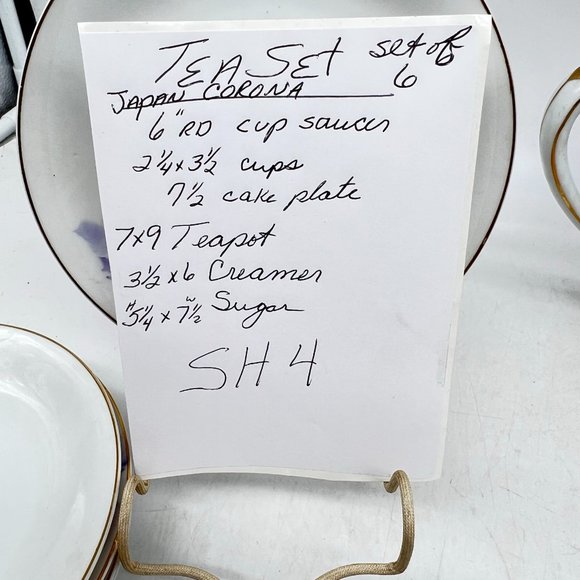 TEA SET set of 6
JAPAN CORONA
6" RD cup saucers
2 1/4 x 3 1/2 cups
7 1/2 cake plate
7x9 Teapot
3 1/2 x 6 Creamer
H 5 1/4 x W 7 1/2 Sugar
SH 4